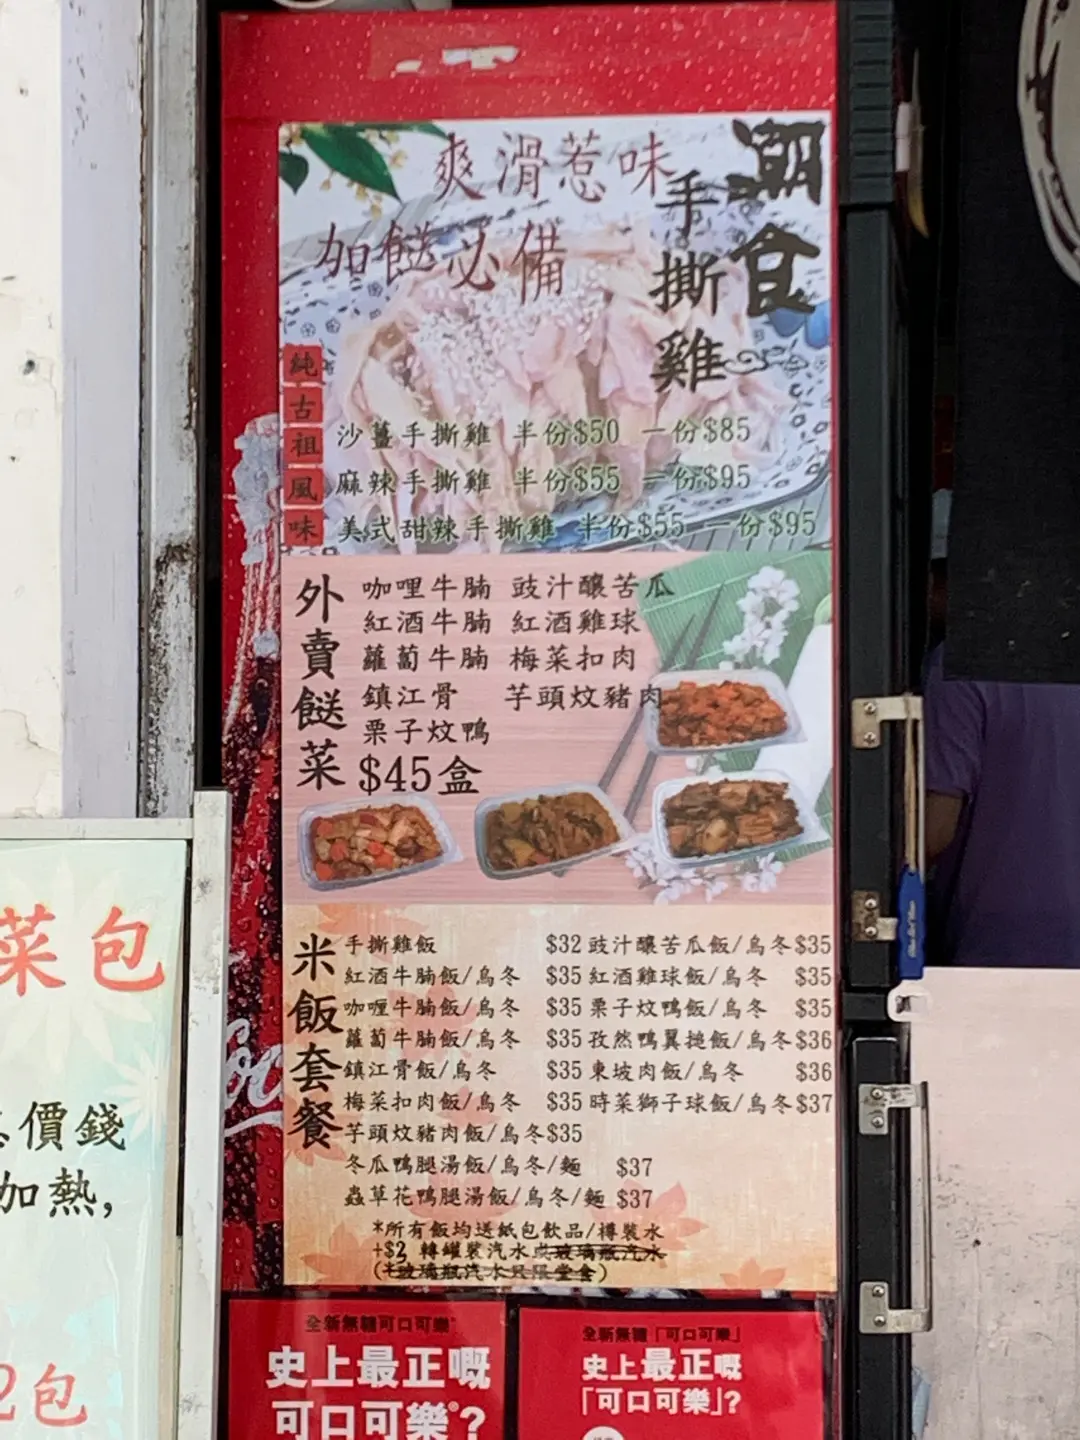 潮食
手撕雞
爽滑惹味
加餸必備
純古祖風味
沙薑手撕雞 半份$50 一份$85
麻辣手撕雞 半份$55 一份$95
美式甜辣手撕雞 半份$55 一份$95
外賣餸菜
咖哩牛腩 豉汁釀苦瓜
紅酒牛腩 紅酒雞球
蘿蔔牛腩 梅菜扣肉
鎮江骨 芋頭炆豬肉
栗子炆鴨
$45盒
米飯套餐
手撕雞飯 $32 豉汁釀苦瓜飯/烏冬$35
紅酒牛腩飯/烏冬 $35 紅酒雞球飯/烏冬 $35
咖喱牛腩飯/烏冬 $35 栗子炆鴨飯/烏冬 $35
蘿蔔牛腩飯/烏冬 $35 孜然鴨翼搥飯/烏冬$36
鎮江骨飯/烏冬 $35 東坡肉飯/烏冬 $36
梅菜扣肉飯/烏冬 $35 時菜獅子球飯/烏冬$37
芋頭炆豬肉飯/烏冬$35
冬瓜鴨腿湯飯/烏冬/麵 $37
蟲草花鴨腿湯飯/烏冬/麵 $37
*所有飯均送紙包飲品/樽裝水
+$2 轉罐裝汽水或玻璃瓶汽水
(*玻璃瓶汽水只限堂食)
全新無糖可口可樂
史上最正嘅
可口可樂?
全新無糖「可口可樂」
史上最正嘅
「可口可樂」?
菜包
價錢
加熱,
2包